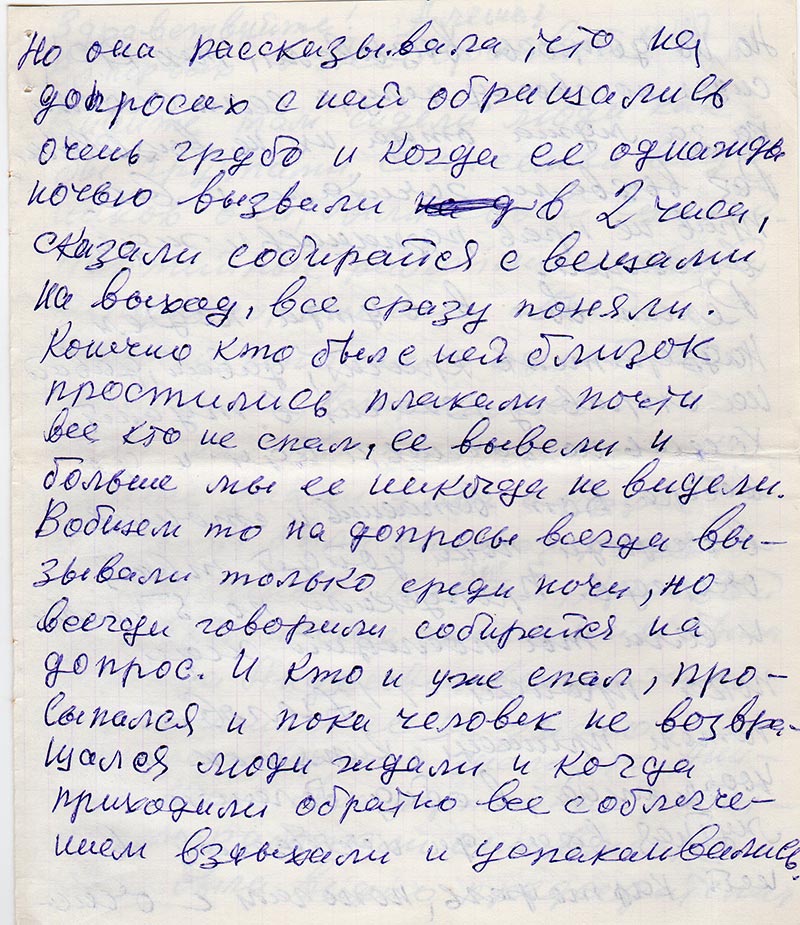 Но она рассказывала, что на
допросах с ней обращались
очень грубо и когда ее однажды
ночью вызвали в 2 часа,
сказали собирайтся с вещами
на выход, все сразу поняли.
Конечно кто был с ней близок
простились плакали почти
все кто не спал, ее вывели и
больше мы ее никогда не видели.
Вобщем то на допросы всегда вы-
зывали только среди ночи, но
всегда говорили собирайтся на
допрос. И кто и уже спал, про-
сыпался и пока человек не возвра-
щался люди ждали и когда
приходили обратно все с облегче-
нием вздыхали и успакаивались.